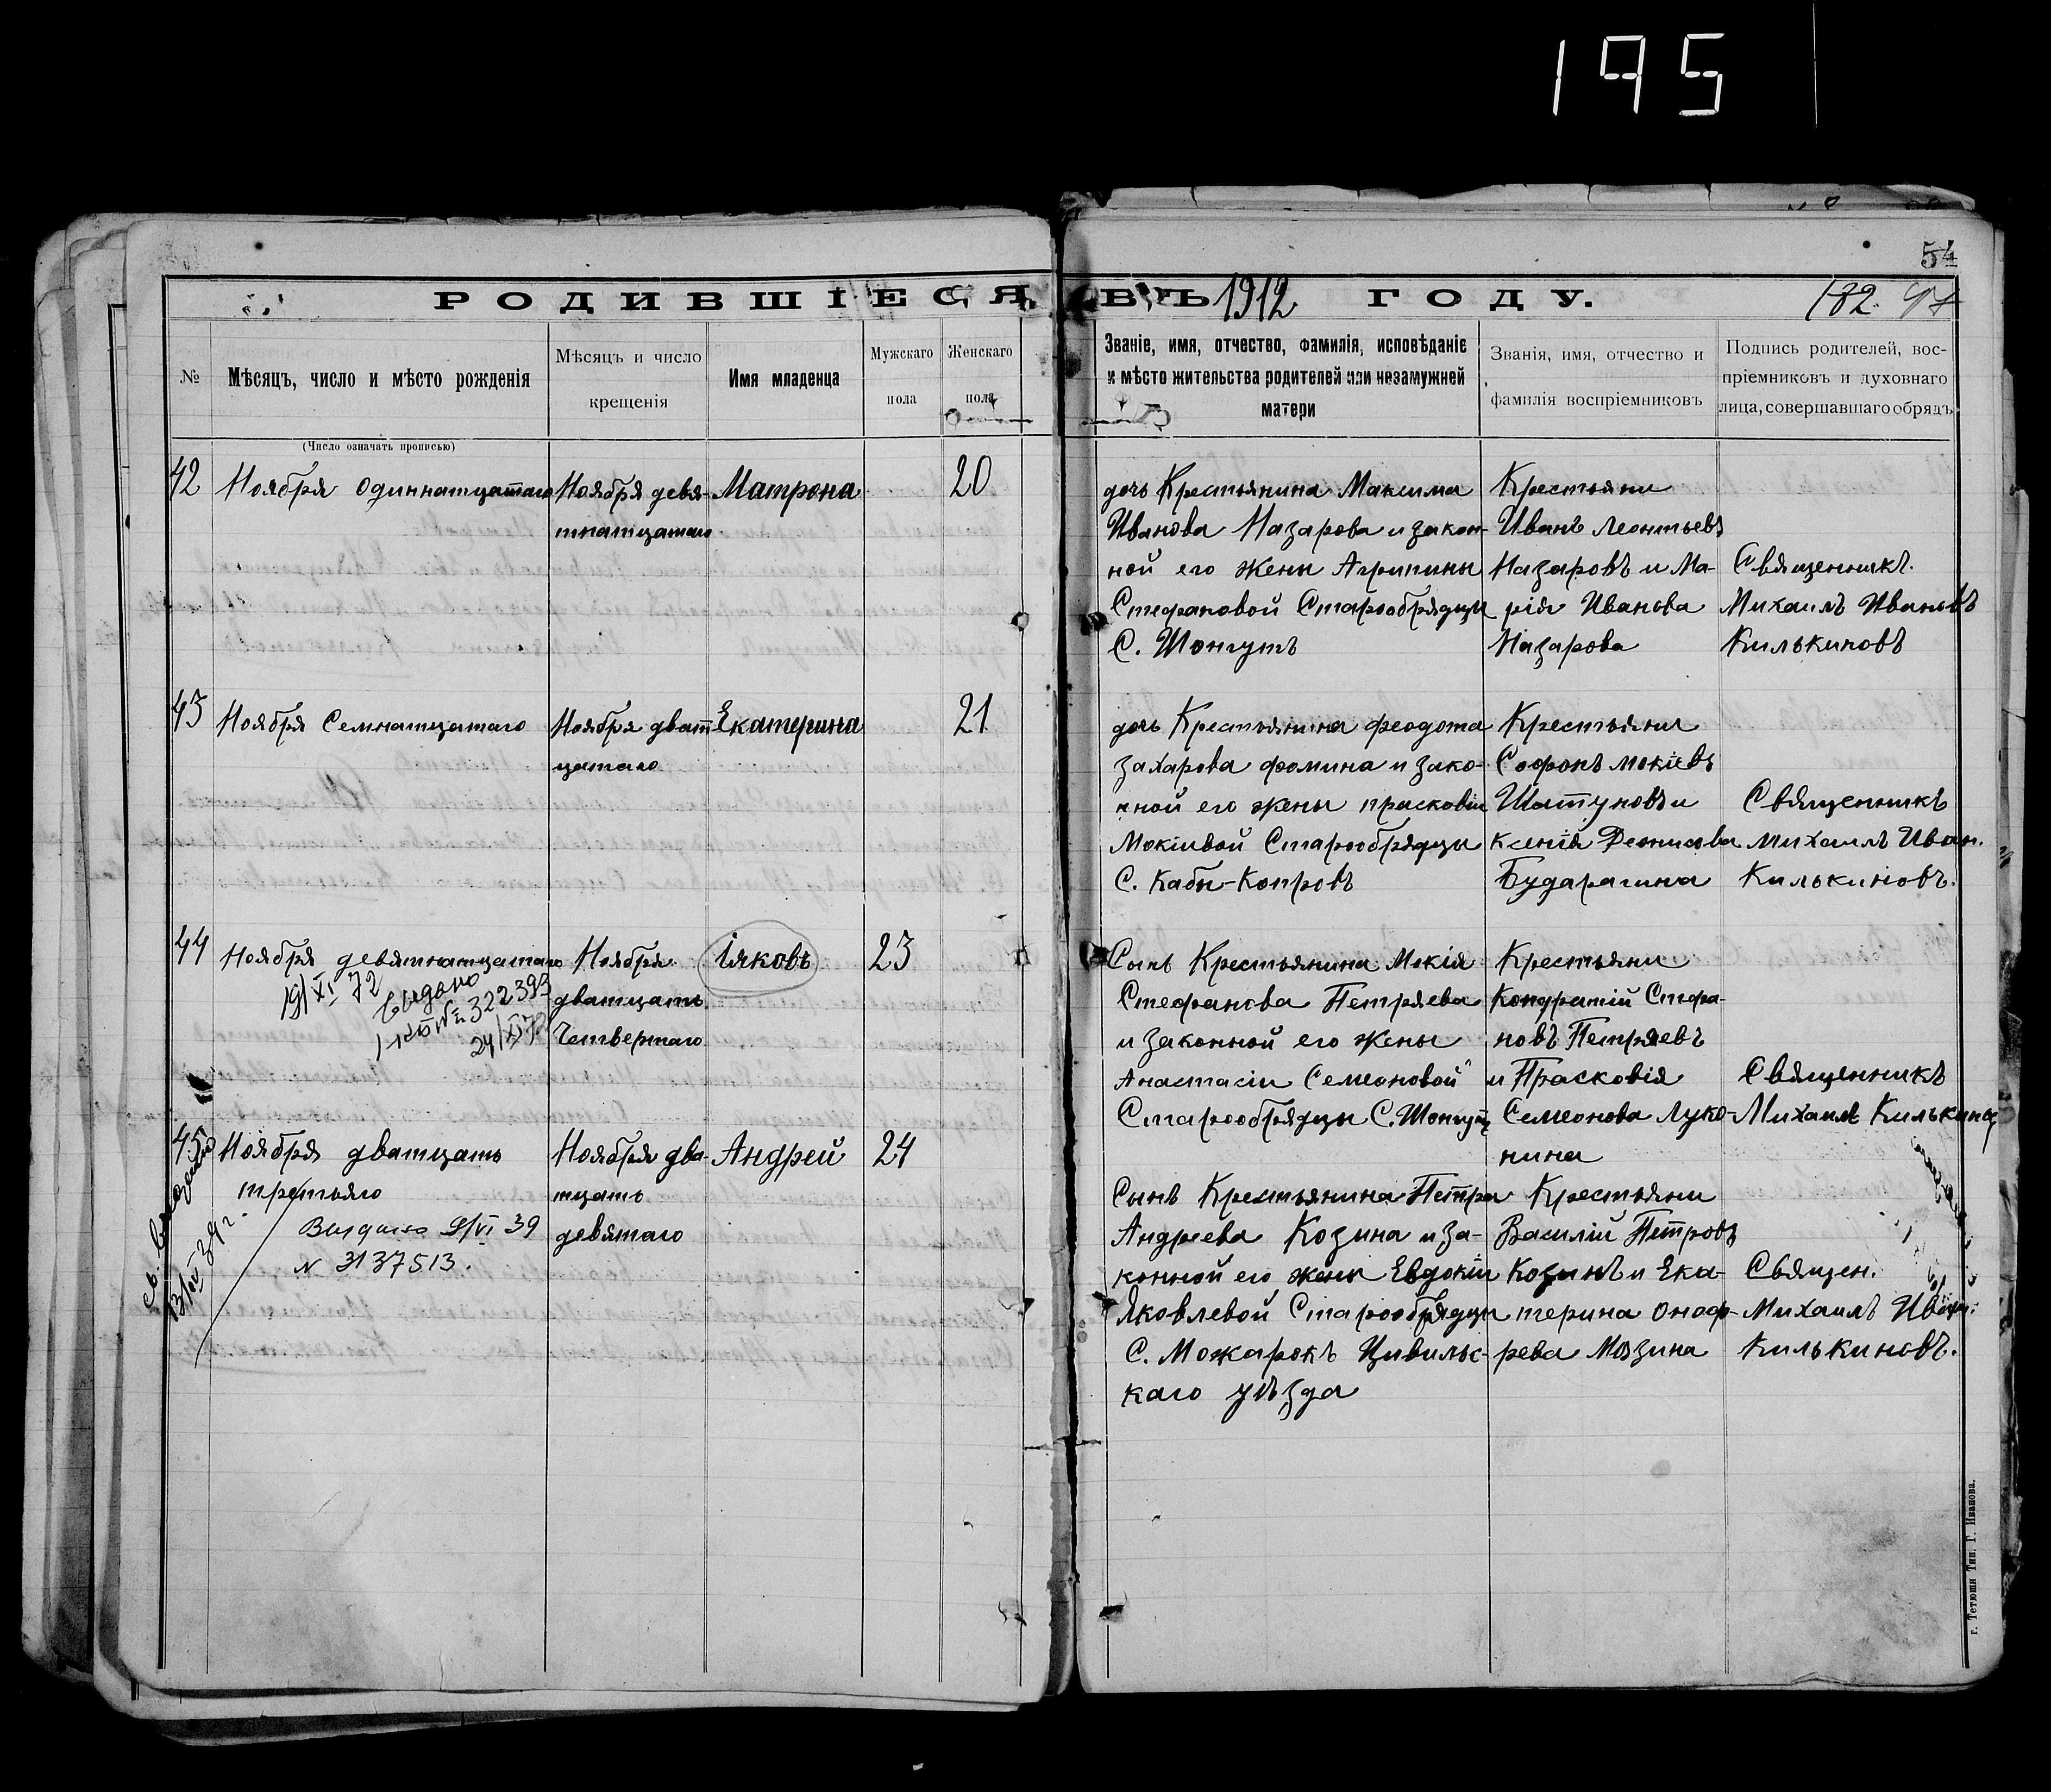 195
54
РОДИВШІЕСЯ ВЪ 1912 ГОДУ.
182.
№
Мѣсяцъ, число и мѣсто рожденія
Мѣсяцъ и число
крещенія
Имя младенца
Мужскаго
пола
Женскаго
пола
Званіе, имя, отчество, фамилія, исповѣданіе
и мѣсто жительства родителей или незамужней
матери
Званія, имя, отчество и
фамилія воспріемниковъ
Подпись родителей, вос-
пріемниковъ и духовнаго
лица, совершавшаго обрядъ
(Число означать прописью)
42
Ноября одиннатцатаго
Ноября девя-
тнатцатаго
Матрона
20
дочь Крестьянина Максима
Иванова Назарова и закон-
ной его жены Агрипины
Стефановой Старообрядцы
С. Шонгутъ
Крестьяни
Иванъ Леонтьевъ
Назаровъ и Ма-
рія Иванова
Назарова
Священникъ.
Михаилъ Ивановъ
Килькиновъ
43
Ноября Семнатцатаго
Ноября дват-
цатаго
Екатерина
21
дочь Крестьянина феодота
Захарова фомина и зако-
нной его жены прасковіи
Мокіивой Старообрядцы
С. Кабы-Копровъ
Крестьяни
Софонъ мокіевъ
Шатуновъ и
ксенія Деонисова
Бударагина
Священникъ
михаилъ Иван.
Килькиновъ.
44
Ноября девятнатцатаго
19/XI 72
выдано
№ 322393
24/XI 72
Ноября
дватцать
Четвертаго
Іяковъ
23
Сынъ Крестьянина Мокія
Стефанова Петряева
и законной его жены
Анастасіи Семеоновой
Старообрядцы С. Шонгутъ
Крестьяни
Кондратій Стефа-
новъ Петряевъ
и Прасковія
Семеонова Луко-
нина
Священникъ
Михаилъ Килькинъ
45
Ноября дватцать
третьяго
Выдано 9/VI 39
N 3137513.
13/IV 39 г.
Ноября два-
тцать
девятаго
Андрей
24
Сынъ Крестьянина Петра
Андреева Козина и за-
конной его жены Евдокіи
Яковлевой Старообрядцы
С. Можарокъ Цивильс-
каго уѣзда
Крестьяни
Василій Петровъ
Козинъ и Ека-
терина Оноф-
рева Мозина
Священ.
Михаилъ Иван.
Килькиновъ.
г. Тетюши Тип. Г. Иванова.